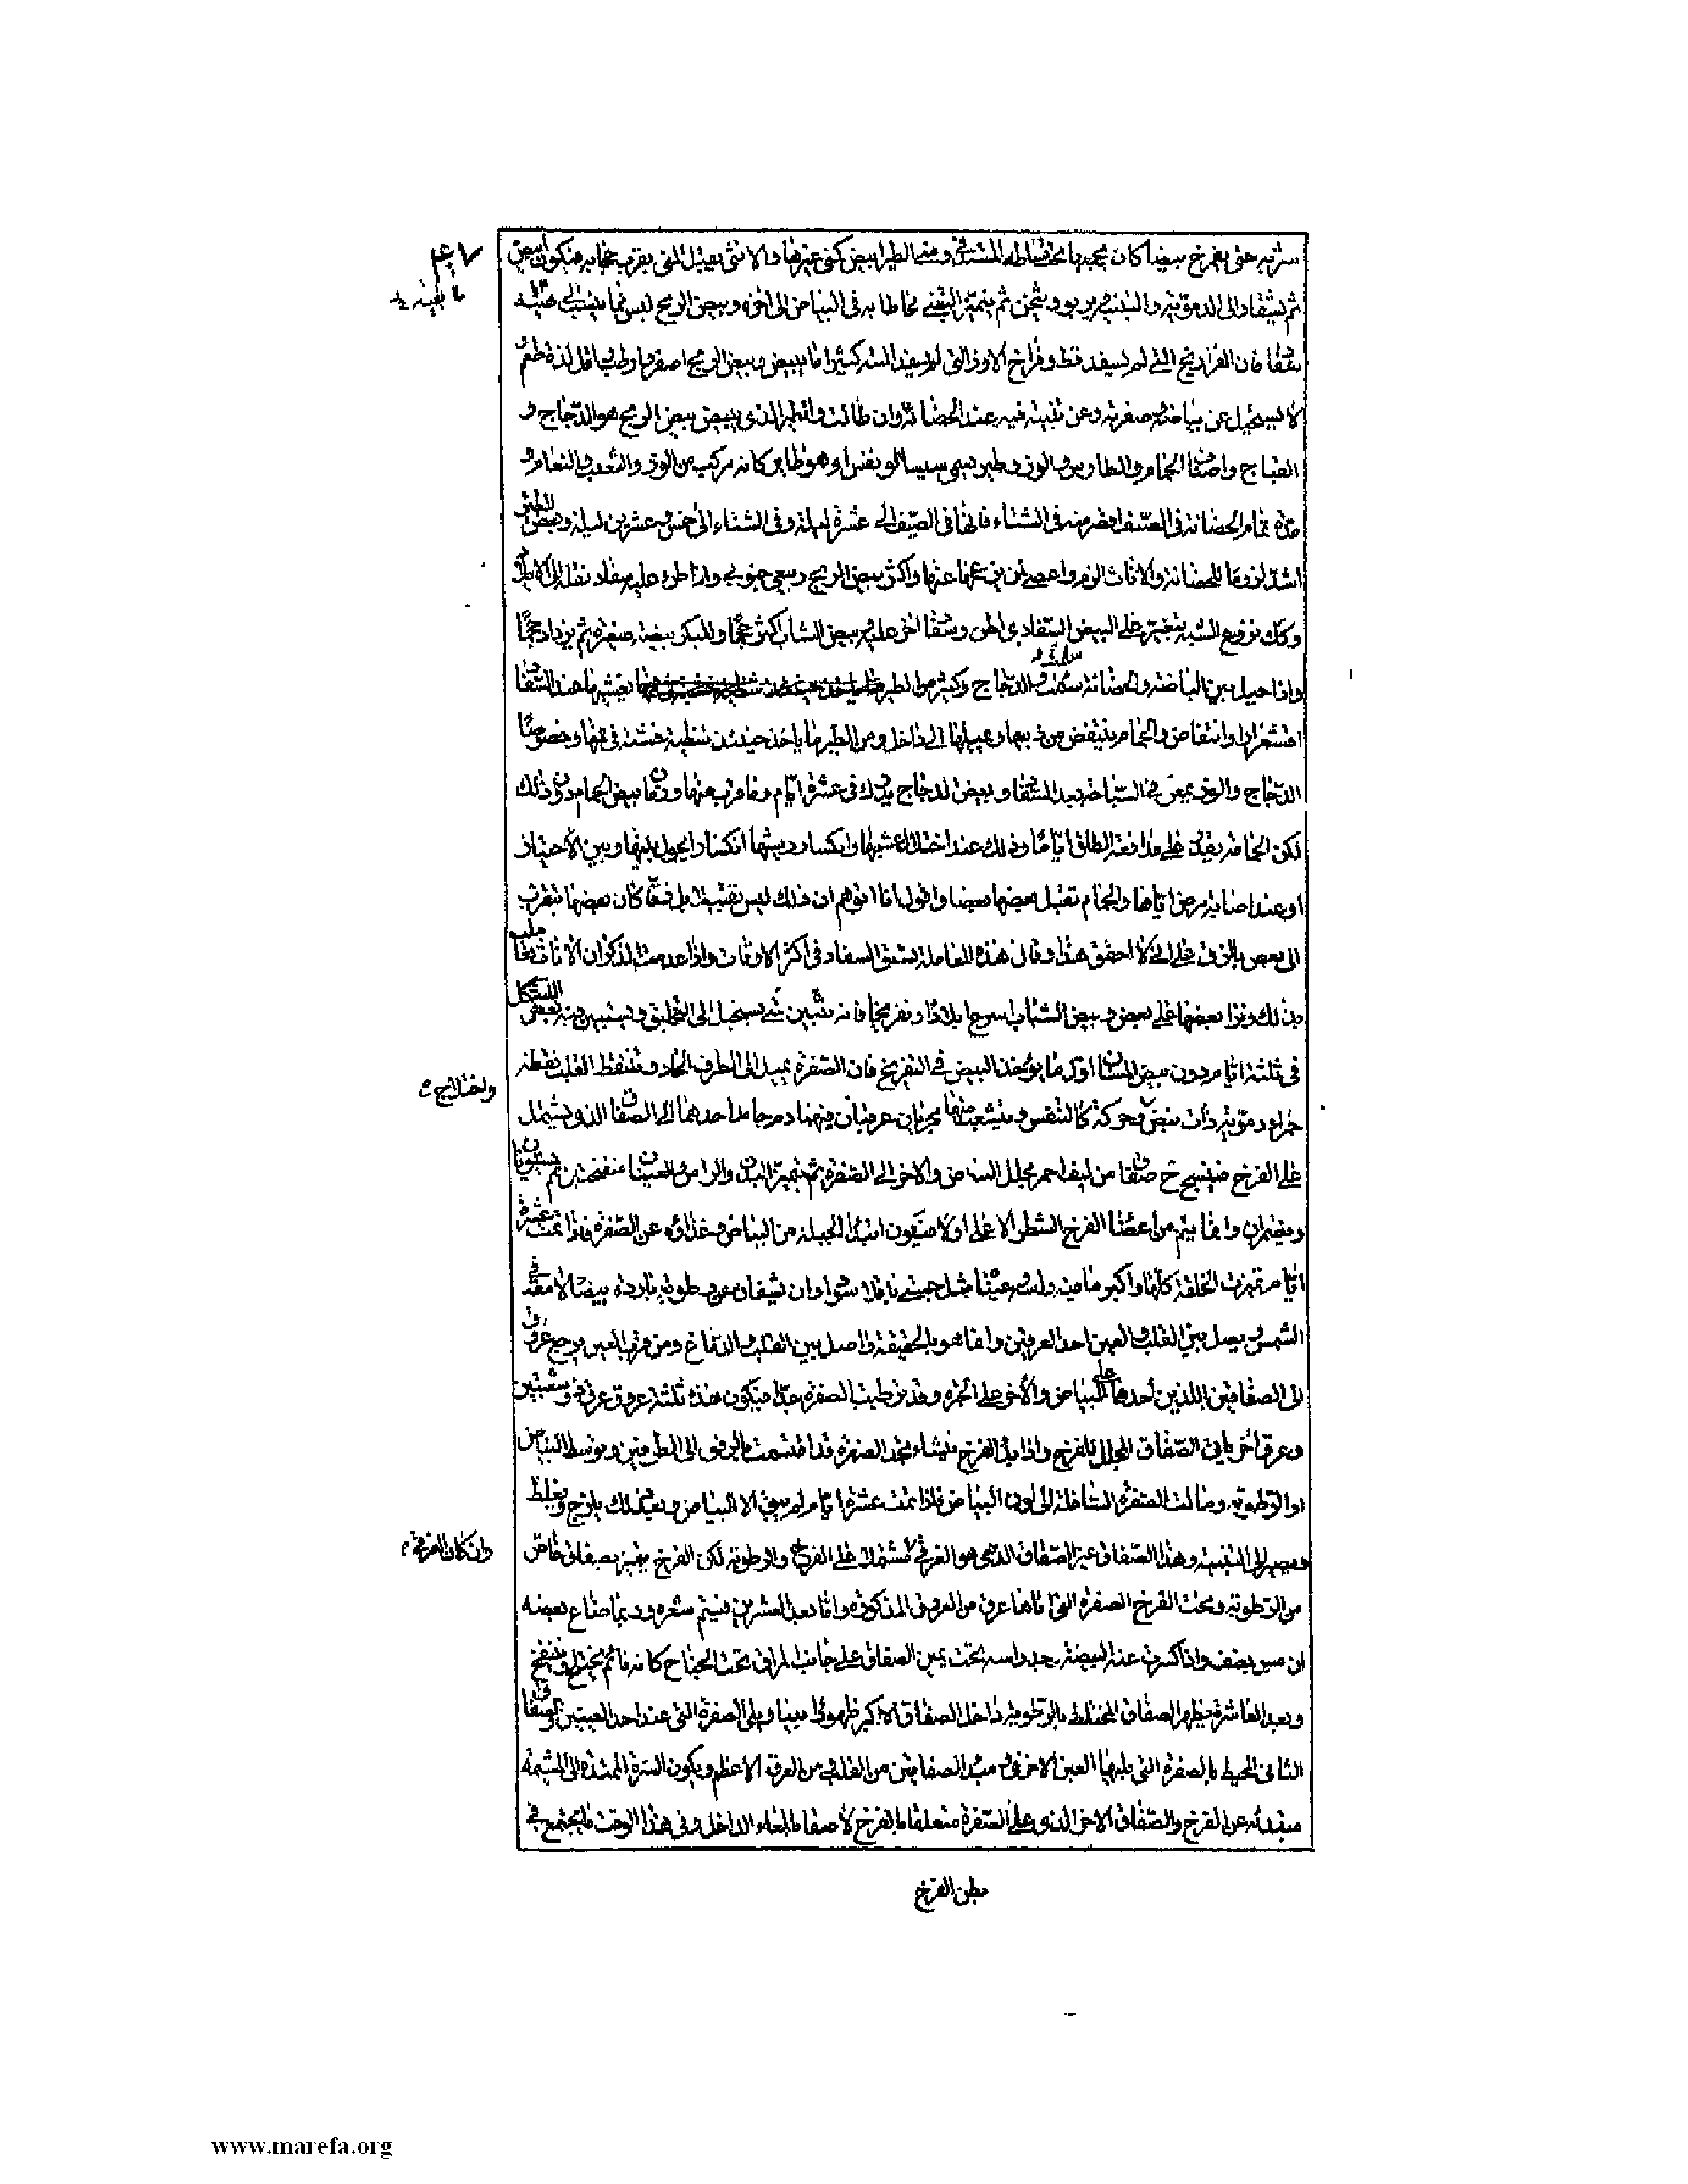 شربه حتى يفرخ بيضا كان يجمعها تحت بساطه المستدفئ ومنى الطير ابيض كمنى غيرها والانثى يقبل المنى بقرب حجابه فيكون ابيض
ثم يستفاد الى الدموية والتبنية ويربو ويثخن ثم يتميز البيض مخاطا به فى البياض الى اخره وبيض الريح ليس انما ينسب الى
سفاد فان الفراريج التى لم تسفد قط وفراخ الاوز التى لم تسفد البتة كثيرا ما تبيض وبيض الريح اصغر وارطب واقل لذة طعم
لا يستحيل عن بياضه وصفرته وعن تبنيته فيه عند الحضانة وان طالت والطير الذى يبيض بيض الريح هو الدجاج و
القباج واصناف الحمام والطاوس والوز وطير يسمى وهو طاير كانه مركب من الوز و والنعام و
مدة تمام الحضانة فى الصيف اقصر منه فى الشتاء فانها فى الصيف الى عشرة ليلة وفى الشتاء الى خمس وعشرين ليلة وبعض الطير
اشد لزوما للحضانة والاناث الزم واعصى من ان يزعجها عنها واكثر بيض الريح ربيعى جنوبى واذا طرء عليه سفاد نقله الى الايلاد
وكذلك فى وقوع الشبه بتغير على البيض السفادى اذا طرء سفاد اخر عليه وبيض الشاب اكثر حجما وللبكر بيضة صغيرة ثم يزداد حجما
واذا حيل بين البايضة والحضانة ساءت حالها والدجاج وكثير من الطير يغشيها عند السفاد
اقشعرار وانتفاض والحمام ينتفض من ذنبها ويميلها الى داخل ومن الطير ما ياخذ حينئذ شظية خشنة فى فمها وخصوصا
الدجاج والوز يمعن فى السباحة بعد السفاد وبيض الدجاج يدرك فى عشرة ايام وما قرب منها واما بيض الحمام دون ذلك
لكن الحمامة يقدر على مدافعة الطلق اياما وذلك عند اختلال عشها وانكسار ريشها انكسارا يحول بينها وبين الاختيار
او عند اصابة مرض اياها والحمام تقبل بعضها بعضا واقول انا اتوهم ان ذلك ليس تقبيلا بل زقا كان بعضها يتقرب
الى بعض بالزق على انى لا احقق هذا وقال هذه المعاملة تسبق السفاد فى اكثر الاوقات واذا عدمت الذكران الاناث تلاعبت
بذلك ونزا بعضها على بعض وبيض الشباب اسرع ايلادا وتفريخا فانه تتبين شى يستحيل الى التخليق ويستبين فيه بعض التشكل
فى ثلثة ايام دون بيض المسان واول ما يؤخذ البيض فى التفريخ فان الصفرة يميل الى الطرف الحاد وتنقط القلب نقطة
حمراء دموية ذات نبض وحركة كالتنفس وينشعب منها مجريان عرقيان فيهما دم جامد احدهما الى الصفاق الذى يشتمل
على الفرخ فينسج ح صفاقا من ليف احمر مجلل البياض والاخر الى الصفرة ثم يتميز البدن والراس والعينان منتفخين ثم يستويان
ويضمران وانما يتم من اعضاء الفرخ الشطر الاعلى اولا فيكون ابتداء الجبلة من البياض وغذاؤه عن الصفرة فاذا تمت عشرة
ايام تميزت الخلقة كلها واكبر ما فيه راسه وعيناه مثل حبتى باقلا سوداوان تشفان عن رطوبة باردة بيضاء لامعة فى
الشمس ويصل بين القلب والعين احد العرقين وانما هو بالحقيقة واصل بين القلب والدماغ ومن قرب العين يرجع عروق
الى الصفاقين اللذين احدهما على البياض والاخر على الحمرة وقد ترطبت الصفرة جدا فيكون هذه ثلثة عروق عرق ذو شعبتين
وعرق اخر ياتى الصفاق المجلل للفرخ واذا بدا الفرخ ينشاء تجد الصفرة قد انقسمت بالرفق الى الطرفين ويتوسط البياض
او الرطوبة ومالت الصفرة السافلة الى لون البياض فاذا تمت عشرة ايام لم يبق الا البياض وبعد ذلك يلزج ويغلظ
ويصير الى التبنية وهذا الصفاق غير الصفاق الذى هو الغرقئ مشتمل على الفرخ والرطوبة لكن الفرخ يتميز بصفاق خاص
من الرطوبة وتحت الفرخ الصفرة التى اتاها عرق من العروق المذكورة واما بعد العشرين فيتم شعره وربما صاع بعينه
ان مس بعنف واذا كسرت عنه البيضة وجد راسه تحت يمين الصفاق على جانب المراق تحت الجناح كانه نائم يختلج وينتفخ
وبعد العاشرة يظهر الصفاق المختلط بالرطوبة داخل الصفاق الاكبر ظهورا مبينا ويلى الصفرة التى عند احد العينين والصفاق
الثانى المحيط بالصفرة التى يليها العين الاخرى ومبدأ الصفاقين من القلب من العرق الاعظم ويكون السرة الممتدة الى المشيمة
متبرئة عن الفرخ والصفاق الاخر الذى على الصفرة متعلقا بالفرخ لاصقا بالمعاء الداخل وفى هذا الوقت ما يجتمع فى
واختلاج
وان كان الغرقئ
بطن الفرخ
www.marefa.org